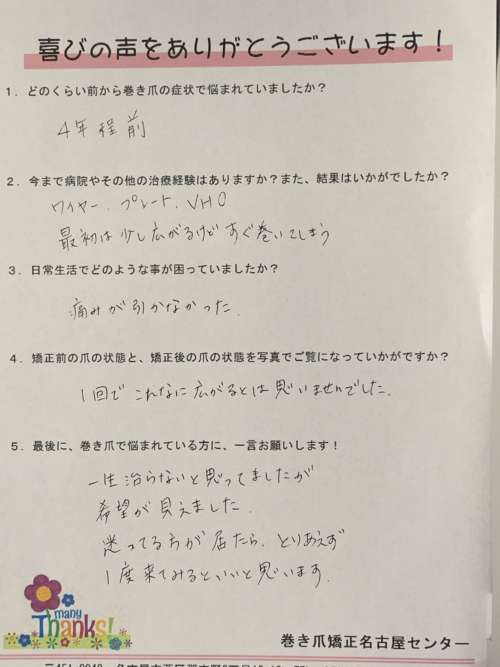 喜びの声をありがとうございます！
1．どのくらい前から巻き爪の症状で悩まれていましたか？
4年程前
2．今まで病院やその他の治療経験はありますか？また、結果はいかがでしたか？
ワイヤー．プレート．VHO
最初は少し広がるけどすぐ巻いてしまう
3．日常生活でどのような事が困っていましたか？
痛みが引かなかった．
4．矯正前の爪の状態と、矯正後の爪の状態を写真でご覧になっていかがですか？
1回でこれなに広がるとは思いませんでした．
5．最後に、巻き爪で悩まれている方に、一言お願いします！
一生治らないと思ってましたが
希望が見えました．
迷ってる方が居たら、とりあえず
1度来てみるといいと思います．
many
Thanks!
巻き爪矯正名古屋センター